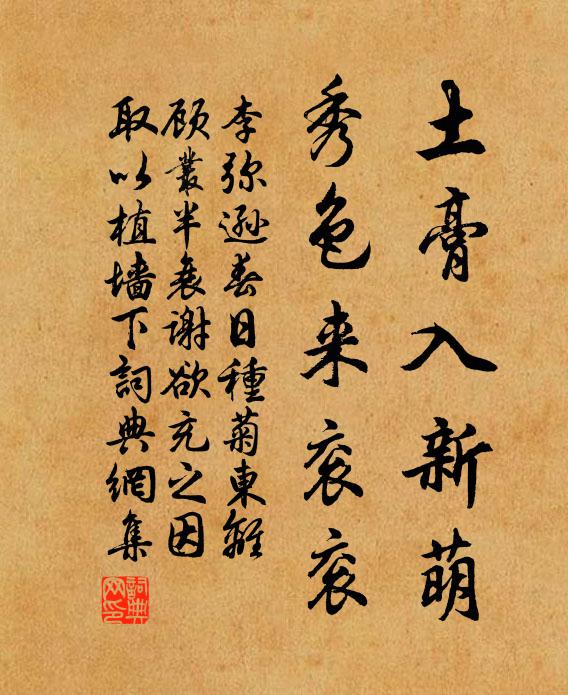 土膏入新萌
秀色来衮衮
李弥遜春日種菊東離
顾叢半衰謝欲充之因
取以植墙下詞典網集
詞典网印